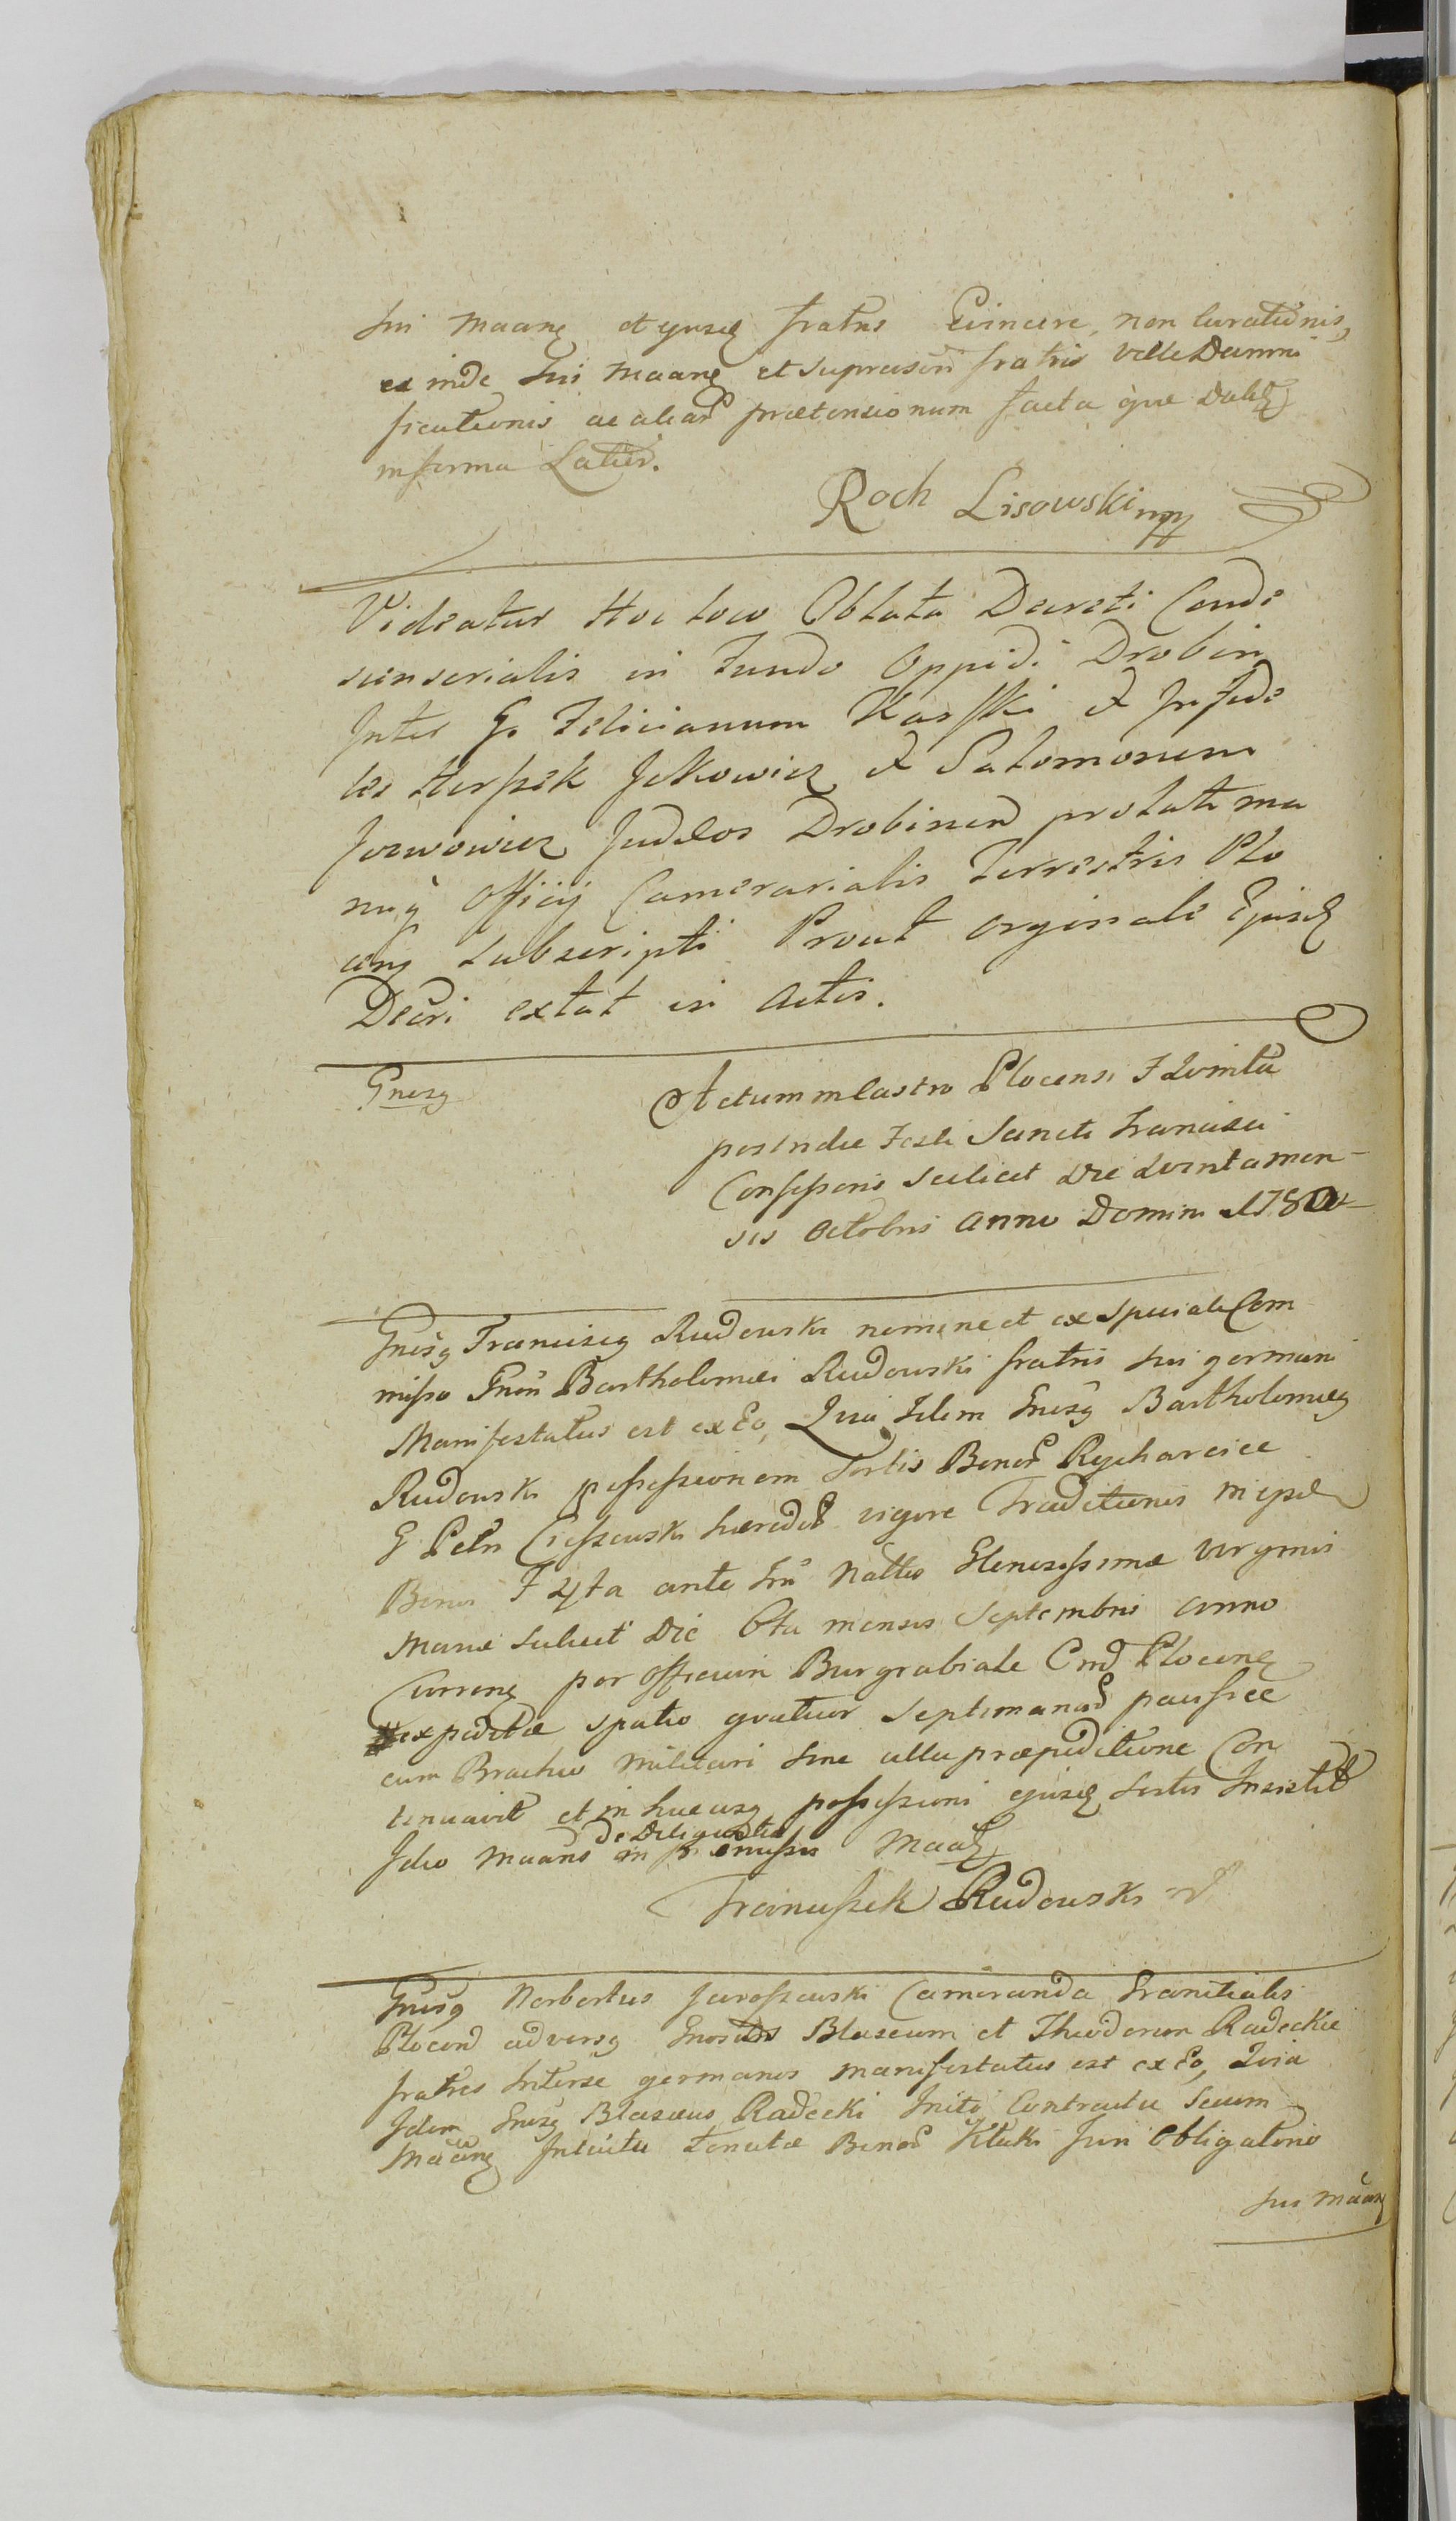 sui maane et ejusd fratris Evincere, non curationis,
ex inde sui maane et suprascri fratris velle Damni
ficationis ac aliar prætensionum facta que Dabit
in forma Latiori.
Roch Lisowski mpp
Videatur Hoc loco Oblata Decreti Conde
scensorialis in Fundo Oppidi Drobin
Inter G. Felicianum Karsski & Infide
les Herszek Jckowicz & Salomonem
Judæos Drobinen prolati ma
nuq Officij Camerarialis Terrestris Plo
cens subscripti Prout originale Ejusd
Decri extat in Actis.
Gnesg
Actum in Castro Plocensi F 5vinta
postridie Festi Sancti Francisci
Confessoris scilicet Die Qvinta men-
sis Octobris Anno Domini 1780
Gnesg Francisсg Rudowski nomine et ex speciali Com
misso Gnsi Bartholomæi Rudowski fratris sui germani
Manifestatus est ex Eo, Quia Idem Gnesg Bartholomeg
Rudowski possessionem Sortis Bonor Rycharcice
G Petri Cieszewski hæredit vigore Traditionis in ipsis
Bonis F 4ta ante Fm Nattis Glorississimæ Virginis
Mariæ scilicet Die 6ta mensis Septembris anno
Curren per Officium Burgrabiale Cnd Plocens
expeditæ spatio qvatuor Septimanar pacifice
cum Brachio Militari sine ulla præpeditione Con
tinuavit et in hucusq possessioni ejusd sortis Insistit
Ideo maans de Deligentia in præmissis Maat
Franciszek Rudowski
Gnesg Norbertus Jaroszewski Camerarida Granitialis
Plocens adversg Gnosos Blaseum et Theodorum Radeckie
fratres Interse germanos manifestatus est ex Eo, Qvia
Idem Gnesg Blaseus Radecki Inito Contractu secum
Maane Intuitu Tenutæ Bonor Kluki Juri Obligatorio
sui Maane